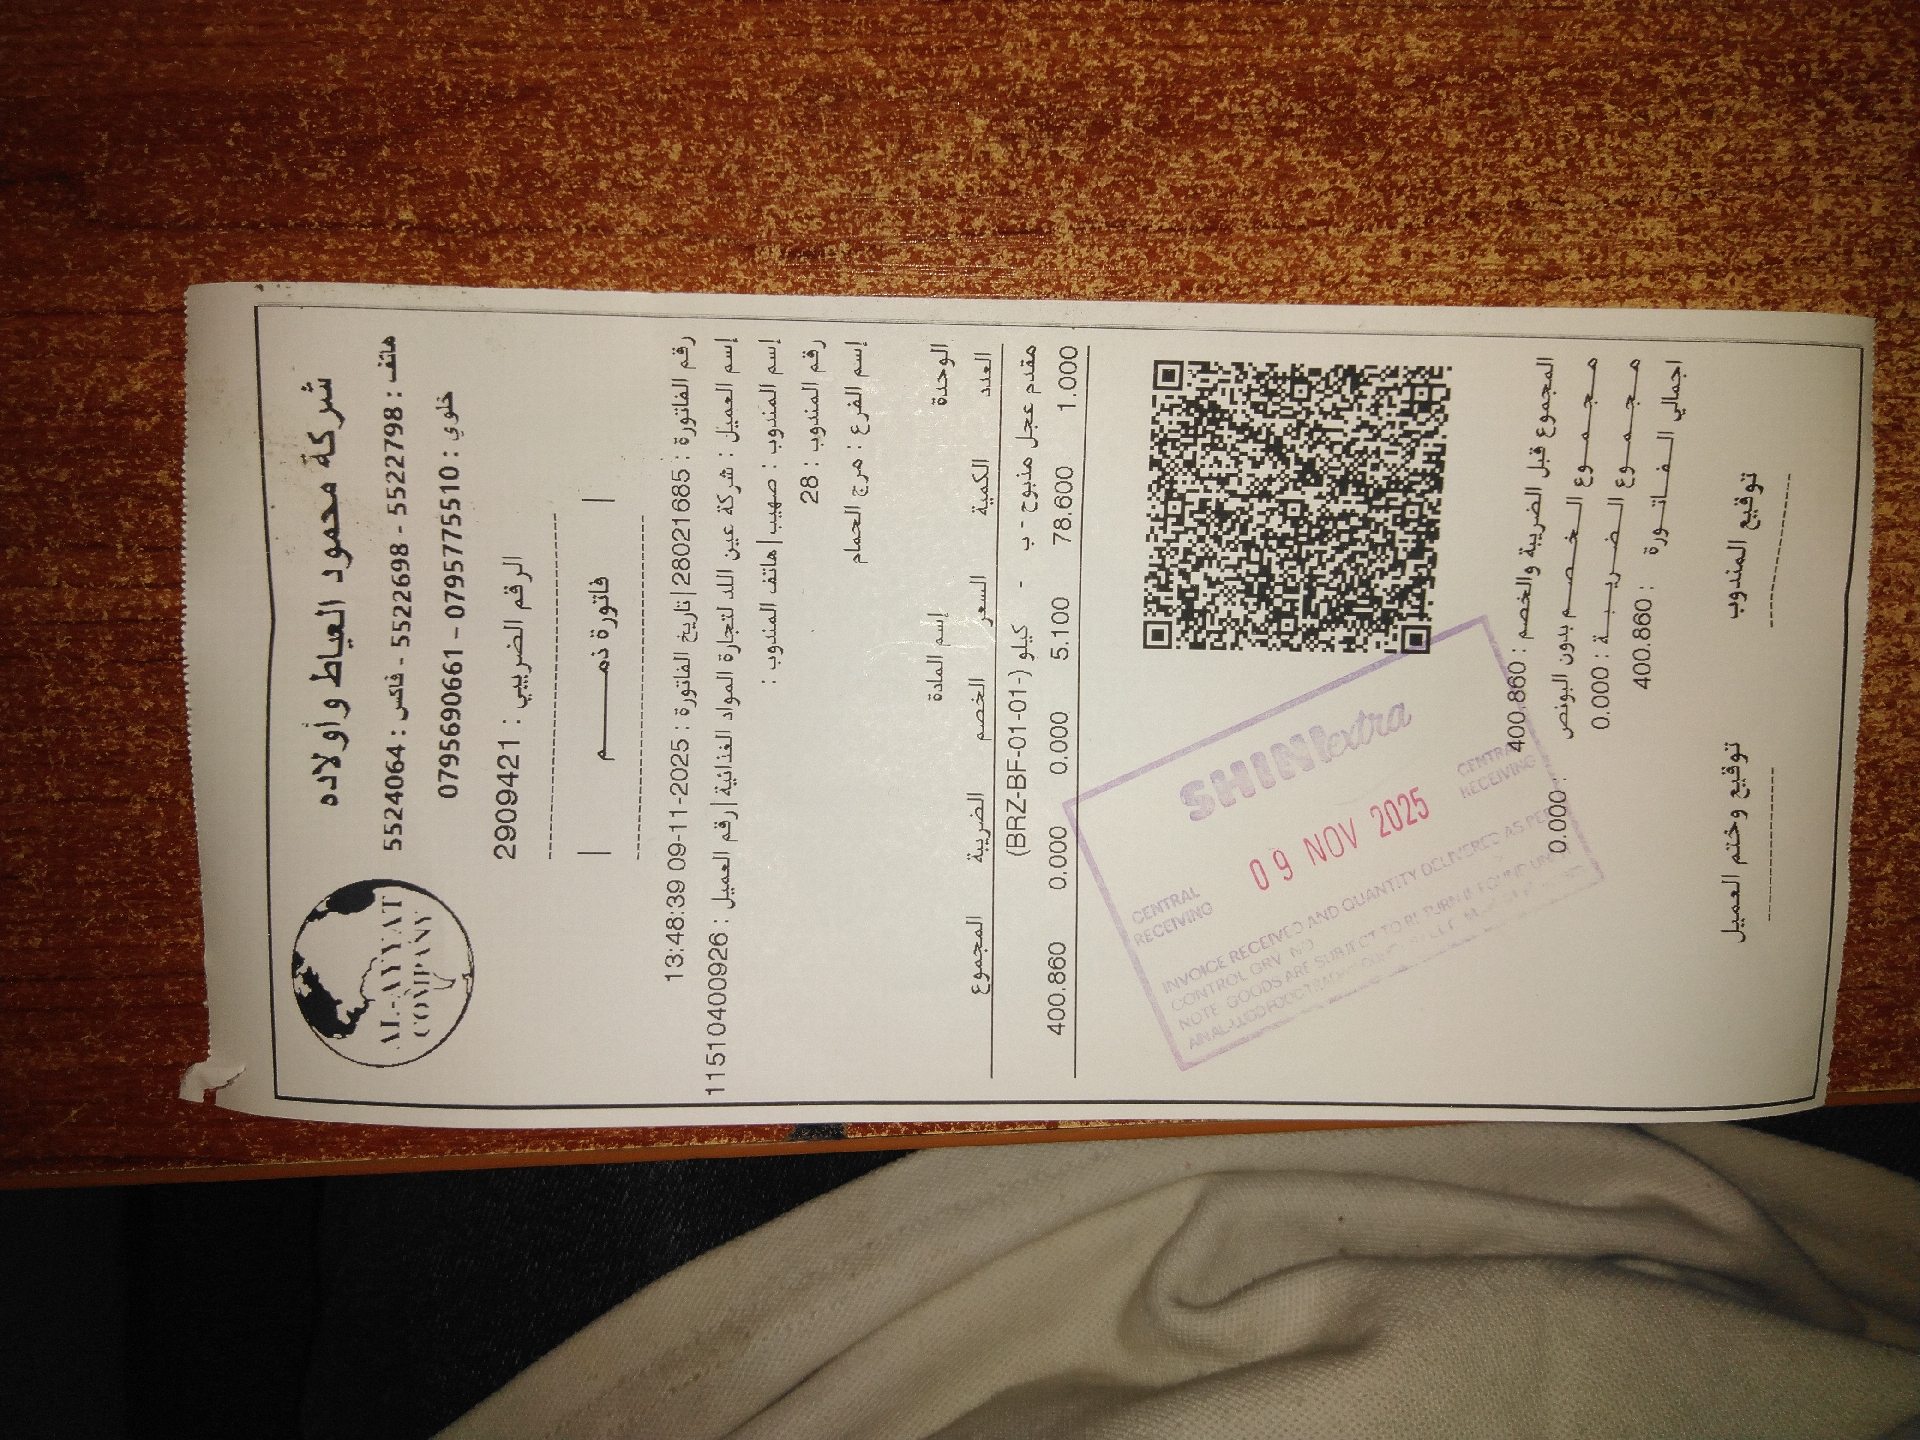 شركة محمود العياط وأولاده
AL-AYYAT
COMPANY
هاتف : 5522798 - 5522698 - فاكس : 5524064
خلوي : 0795775510 – 0795690661
الرقم الضريبي : 2909421
| فاتورة ذمـــــم |
رقم الفاتورة : 28021685|تاريخ الفاتورة : 2025-11-09 13:48:39
إسم العميل : شركة عين اللد لتجارة المواد الغذائية|رقم العميل : 1151040092​6
إسم المندوب : صهيب|هاتف المندوب :
رقم المندوب : 28
إسم الفرع : مرج الحمام
الوحدة إسم المادة
العدد الكمية السعر الخصم الضريبة المجموع
مقدم عجل مذبوح - ب - كيلو (BRZ-BF-01-01-)
1.000 78.600 5.100 0.000 0.000 400.860
SHINIextra
CENTRAL RECEIVING
09 NOV 2025
CENTRAL RECEIVING
INVOICE RECEIVED AND QUANTITY DELIVERED AS PER
CONTROL GRV NO
NOTE GOODS ARE SUBJECT TO RETURN IF FOUND
المجموع قبل الضريبة والخصم : 400.860
مجمـوع الخـصـم بدون البونص : 0.000
مجـمـــوع الـضـريـبـــة : 0.000
اجمالي الـــفـــاتـــورة : 400.860
توقيع المندوب توقيع وختم العميل